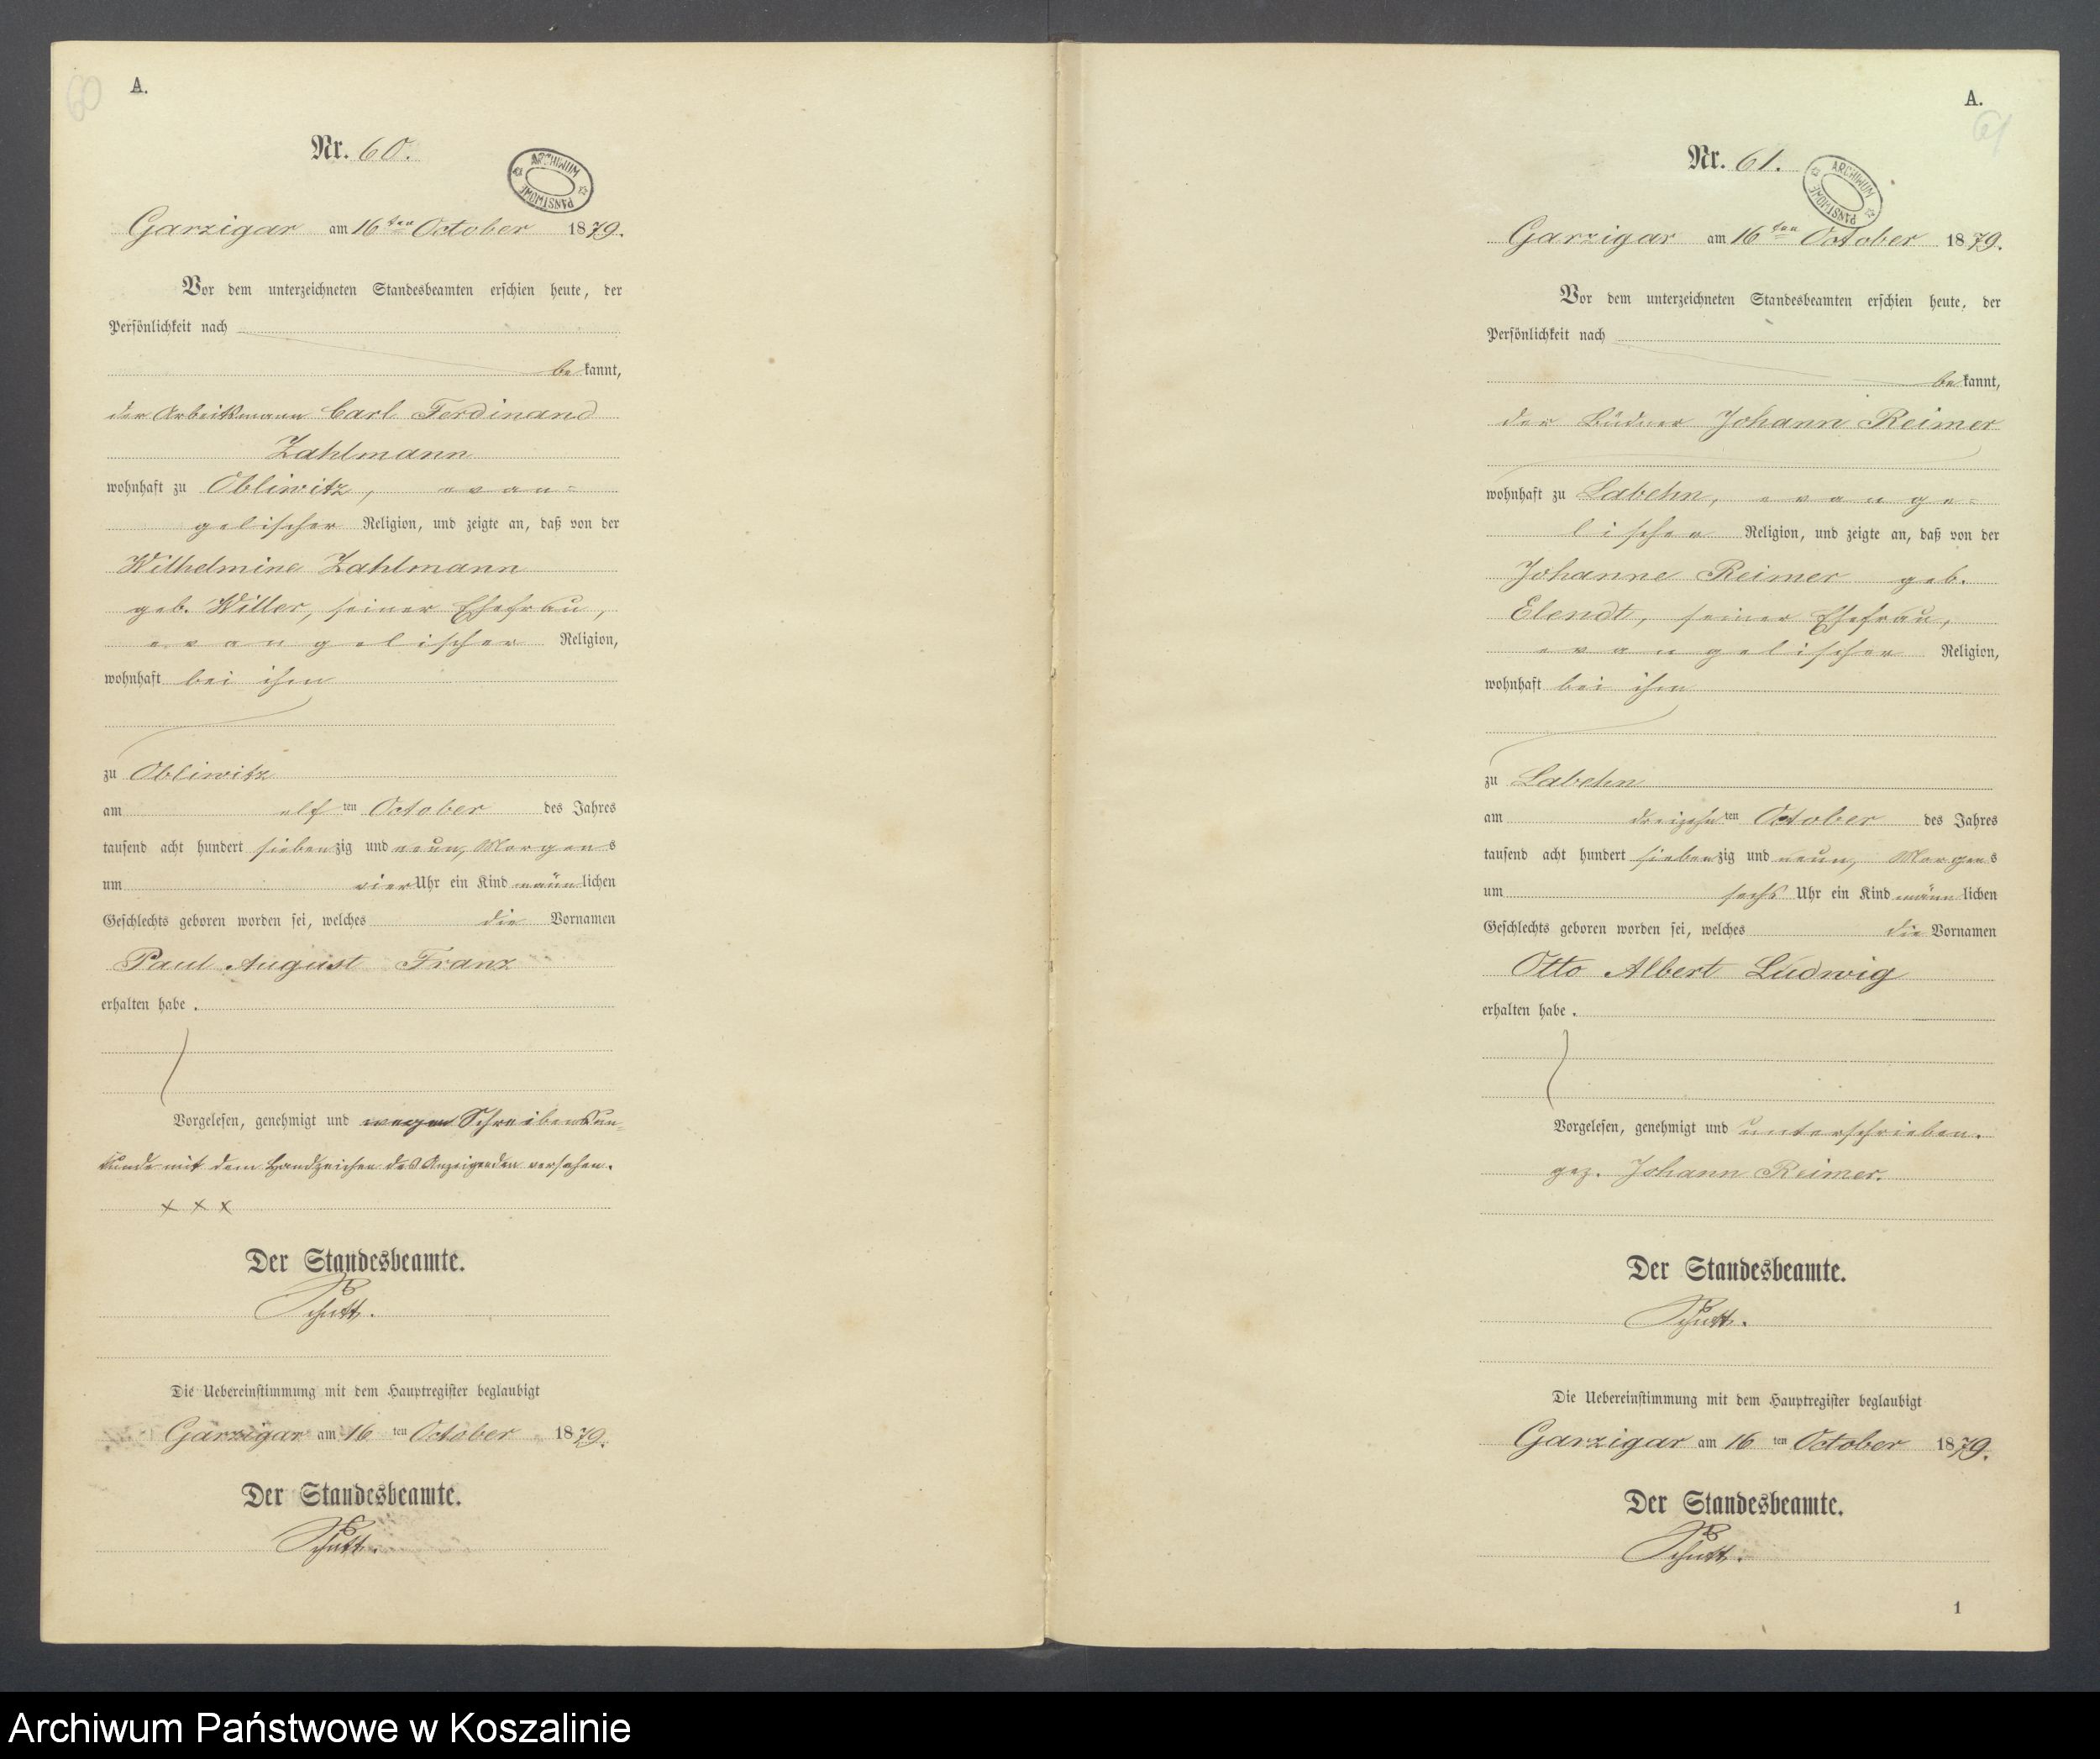 60
A.
Nr. 60.
ARCHIWUM PAŃSTWOWE
Garzigar am 16ten October 1879.
Vor dem unterzeichneten Standesbeamten erschien heute, der
Persönlichkeit nach
bekannt,
der Arbeitsmann Carl Ferdinand
Zahlmann
wohnhaft zu Obliwitz, evan=
gelischer Religion, und zeigte an, daß von der
Wilhelmine Zahlmann
geb. Willer, seiner Ehefrau,
evangelischer Religion,
wohnhaft bei ihm
zu Obliwitz
am elf ten October des Jahres
tausend acht hundert siebenzig und neun, Morgens
um vier Uhr ein Kind männlichen
Geschlechts geboren worden sei, welches die Vornamen
Paul August Franz
erhalten habe.
Vorgelesen, genehmigt und wegen Schreibensun=
kunde mit dem Handzeichen des Anzeigenden versehen.
x x x
Der Standesbeamte.
Schutt.
Die Uebereinstimmung mit dem Hauptregister beglaubigt
Garzigar am 16 ten October 1879.
Der Standesbeamte.
Schutt.
A.
61
Nr. 61.
ARCHIWUM PAŃSTWOWE
Garzigar am 16ten October 1879.
Vor dem unterzeichneten Standesbeamten erschien heute, der
Persönlichkeit nach
bekannt,
der Büdner Johann Reimer
wohnhaft zu Labehn, evange=
lischer Religion, und zeigte an, daß von der
Johanne Reimer geb.
Elendt, seiner Ehefrau,
evangelischer Religion,
wohnhaft bei ihm
zu Labehn
am dreizehn ten October des Jahres
tausend acht hundert siebenzig und neun, Morgens
um sechs Uhr ein Kind männlichen
Geschlechts geboren worden sei, welches die Vornamen
Otto Albert Ludwig
erhalten habe.
Vorgelesen, genehmigt und unterschrieben.
gez. Johann Reimer.
Der Standesbeamte.
Schutt.
Die Uebereinstimmung mit dem Hauptregister beglaubigt
Garzigar am 16 ten October 1879.
Der Standesbeamte.
Schutt.
1
Archiwum Państwowe w Koszalinie